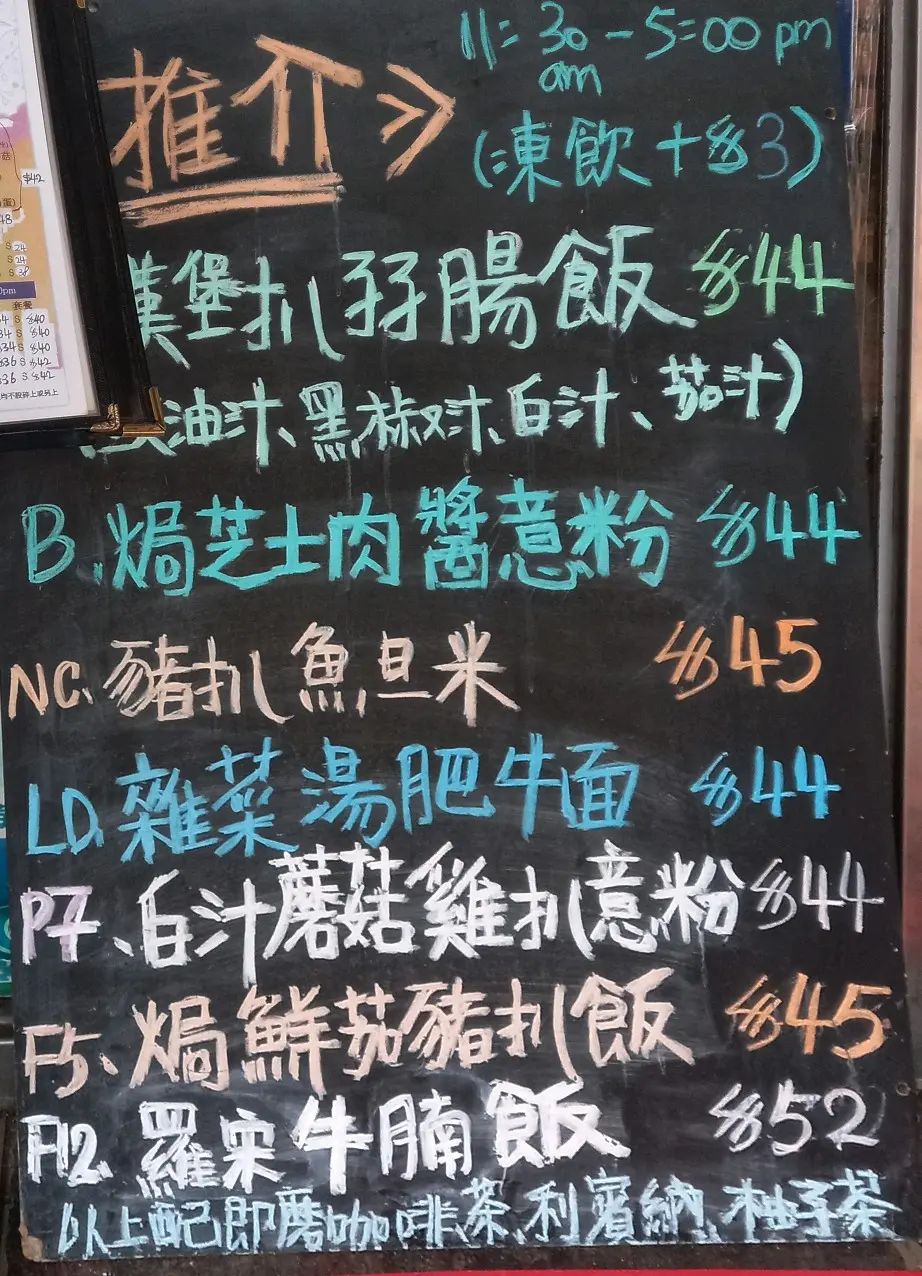 11:30 - 5:00 pm
am
推介》
(凍飲 + $3)
漢堡扒孖腸飯 $44
油汁、黑椒汁、白汁、茄汁)
B、焗芝士肉醬意粉 $44
NC、豬扒魚旦米 $45
LD、雜菜湯肥牛面 $44
P7、白汁蘑菇雞扒意粉 $44
F5、焗鮮茄豬扒飯 $45
F12、羅宋牛腩飯 $52
以上配即磨咖啡、茶、利賓納、柚子茶
$42
48
$24
$24
$38
0pm
套餐
34 $ $40
34 $ $40
$36 $ $42
$36 $ $42